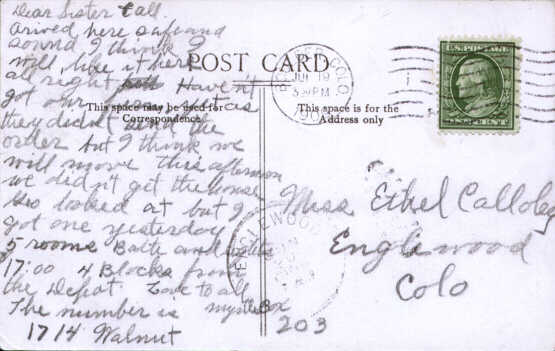 Dear Sister & all.
arived here safe and
sound I think I
will like it here
all right Haven't
got our
they didn't send the
order but I think we
will move this afternoon
we didn't get the house
Geo looked at but I
got one yesterday
5 rooms Bath and
17.00 4 Blocks from
the Depot Love to all
The number is Myrtle Box
1714 Walnut
POST CARD
This space may be used for
Correspondence
This space is for the
Address only
COLO.
JUL 19
530PM
U.S. POSTAGE
ENGLEWOOD
Miss Ethel Calloway
Englewood
Colo
203